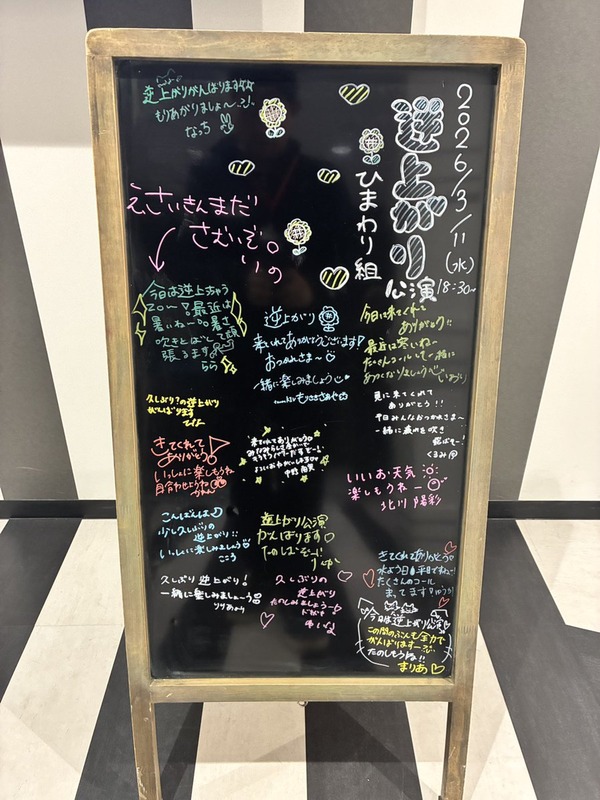 2026/3/11(水)
18:30~
逆上がり
公演
ひまわり組
逆上がりがんばります
もりあがりましょ〜
なっち
え、さいきんまだ
さむいぞ。
いの
今日は逆上ちゃう
20〜!最近は
暑いね〜。暑さ
吹きとばして頑
張るます
らら
逆上がり
来てくれてありがとうございます!
おつかれさま〜
一緒に楽しみましょう
今日は来てくれて
ありがとう!!
最近は寒いね〜
たくさんコールして一緒に
あつくなりましょう
見に来てくれて
ありがとう!!
平日みんなおつかれさま〜
一緒に疲れを吹き
飛ばそー!
くるみ
久しぶり?の逆上がり
がんばります
きてくれて
ありがとう!
いっしょに楽しもうね
目合わせようね
かれん
来てくれてありがとう
いいお天気
楽しもうねー
北川 陽彩
こんばんは
少し久しぶりの
逆上がり!!
いっしょに楽しみましょう
こころ
逆上がり公演
がんばります
たのしむぞー!!
きてくれてありがとう
水よう日 平日でねむい
たくさんのコール
まってます!ゆうき
久しぶり逆上がり!
一緒に楽しみましょ〜
久しぶりの
逆上がり
たのしみましょうか
今日は逆上がり公演
この間のぶんも全力で
がんばります〜
たのしもうね!!
まりあ